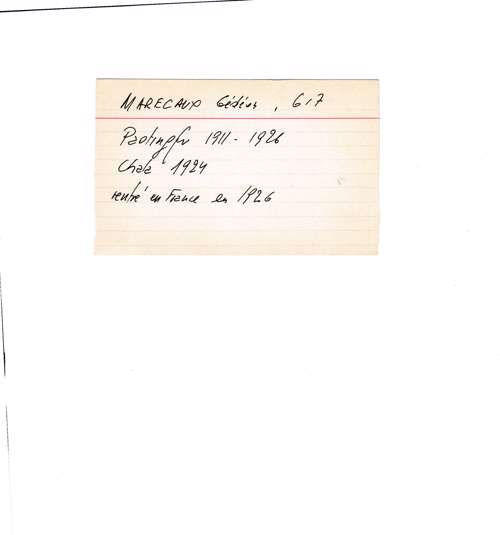 MARECAUX Gédéon, 617
Paotingfu 1911 - 1926
Chala 1924
rentré en France en 1926